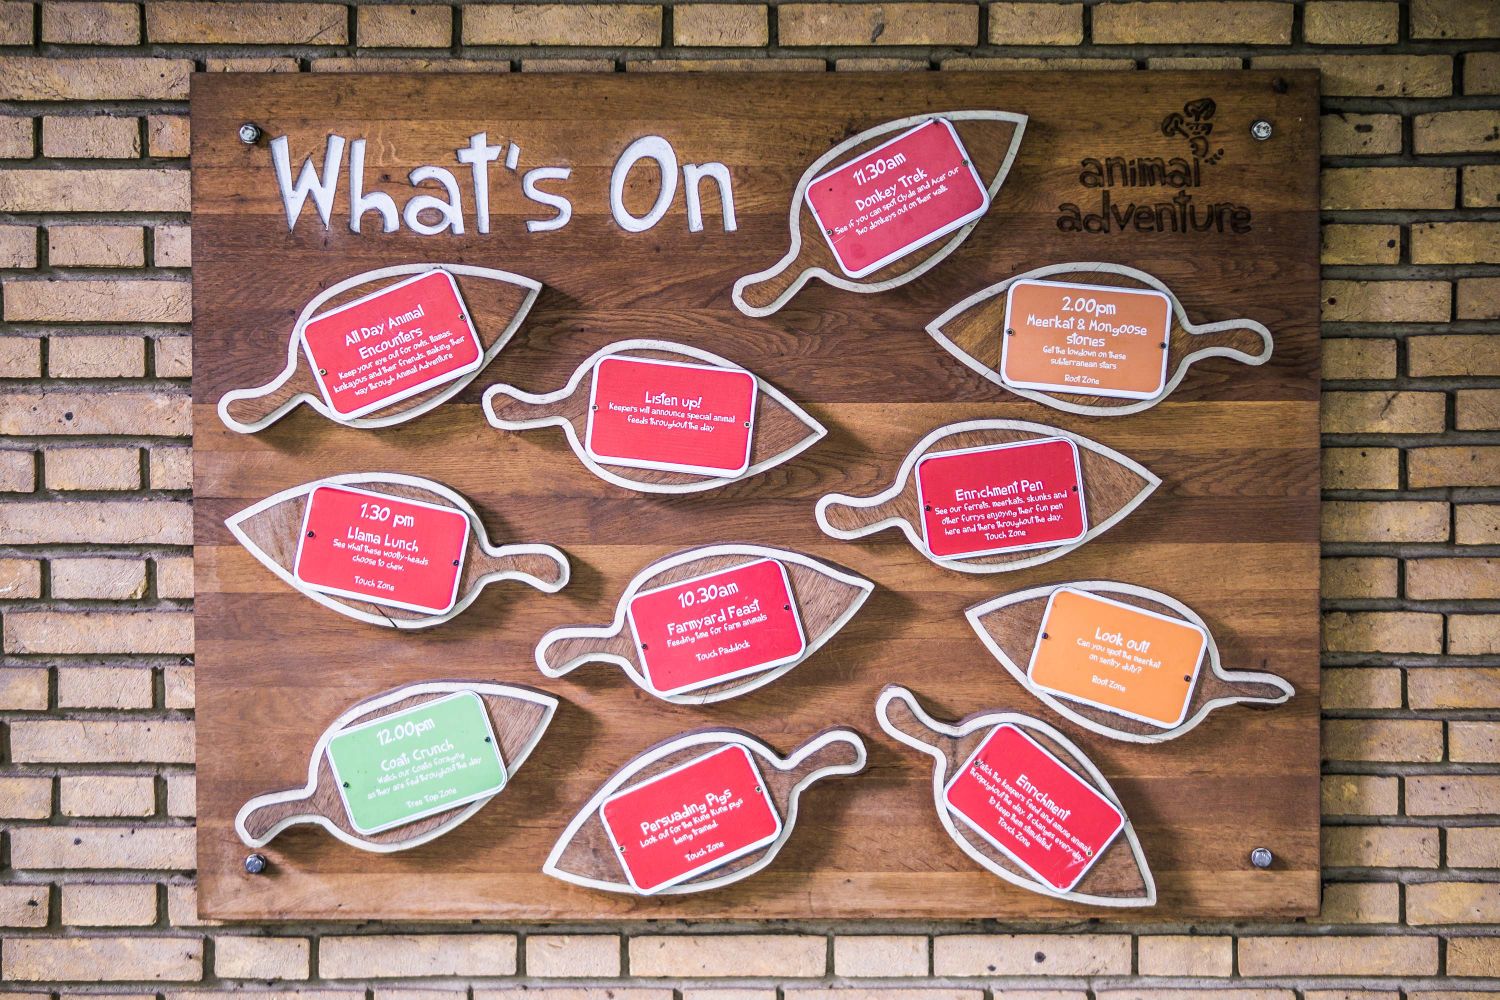 What's On
animal
adventure
11.30am
Donkey Trek
See if you can spot Clyde and Acer our
two donkeys out on their walk
All Day Animal
Encounters
Keep your eye out for owls, llamas,
kinkajous and their friends, making their
way through Animal Adventure
2.00pm
Meerkat & Mongoose
stories
Get the lowdown on these
subterranean stars
Root Zone
Listen up!
Keepers will announce special animal
feeds throughout the day
Enrichment Pen
See our ferrets, meerkats, skunks and
other furrys enjoying their fun pen
here and there throughout the day.
Touch Zone
1.30 pm
Llama Lunch
See what these woolly-heads
choose to chew.
Touch Zone
10.30am
Farmyard Feast
Feeding time for farm animals
Touch Paddock
Look out!
Can you spot the meerkat
on sentry duty?
Root Zone
12.00pm
Coati Crunch
Watch our Coatis foraging
as they are fed throughout the day
Tree Top Zone
Persuading Pigs
Look out for the Kune Kune pigs
being trained.
Touch Zone
Enrichment
Watch the keepers feed and amuse animals
throughout the day. It changes every day
to keep them stimulated.
Touch Zone